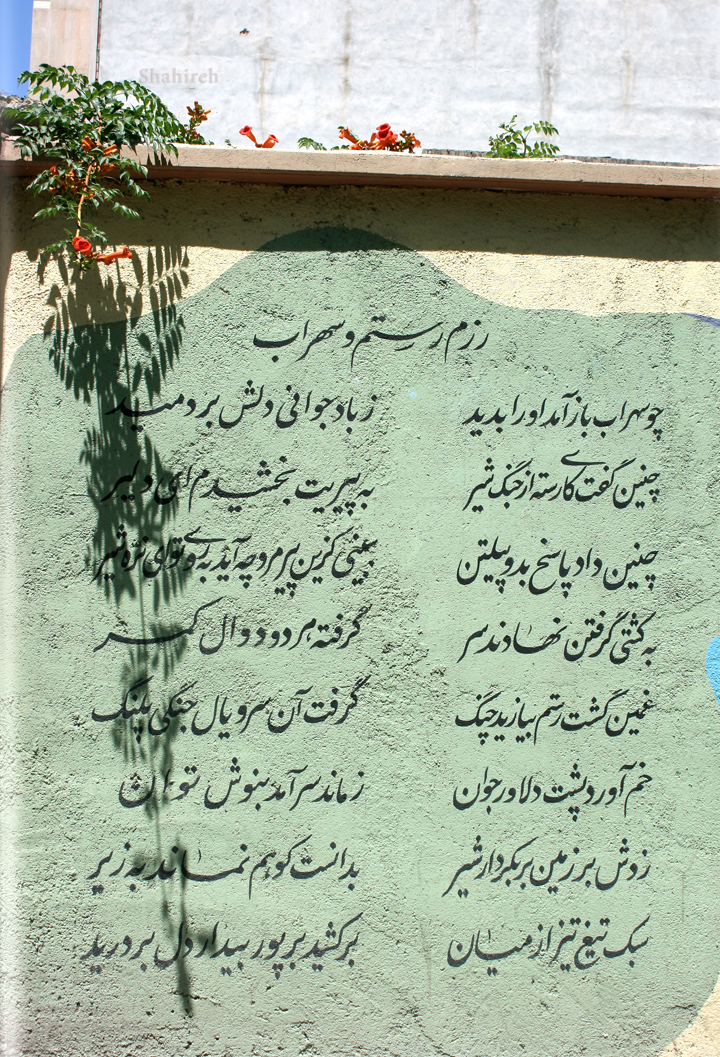 Shahireh
رزم رستم و سهراب
چو سهراب باز آمد او را بدید زباد جوانی دلش بردمید
چنین گفت کای رسته از جنگ شیر به پیریت بخشیدم ای دلیر
چنین داد پاسخ بدو پیلتن ببینی کزین پیر مرد چه آید به روی تو ای نره شیر
به کشتی گرفتن نهادند سر گرفته هر دو دوال کمر
غمین گشت رستم بیازید چنگ گرفت آن سر و یال جنگی پلنگ
خم آورد پشت دلاور جوان زماند سرآمد بنوش توان
زدش بر زمین بر بکردار شیر بدانست کو هم نماند به زیر
سبک تیغ تیز از میان برکشید بر پور بیدار دل بردرید